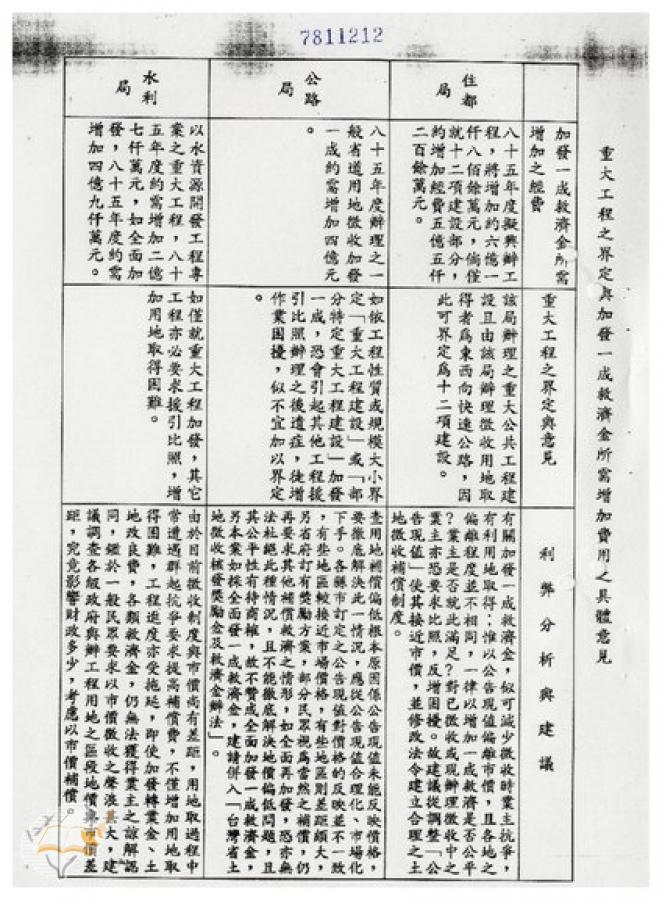 7811212
重大工程之界定與加發一成救濟金所需增加費用之具體意見
加發一成救濟金所需
增加之經費
重大工程之界定與意見
利弊分析與建議
住都
局
八十五年度擬興辦工
程，將增加約六億一
仟八佰餘萬元，倘僅
就十二項建設部分，
約增加經費五億五仟
二百餘萬元。
該局辦理之重大公共工程建
設且由該局辦理徵收用地取
得者為東西向快速公路，因
此可界定為十二項建設。
有關加發一成救濟金，似可減少徵收時業主抗爭，
有利用地取得；惟以公告現值偏離市價，且各地之
偏離程度並不相同，一律以增加一成救濟是否公平
？業主是否就此滿足？對已徵收或現辦理徵收中之
業主亦恐要求比照，反增困擾。故建議從調整「公
告現值」使其接近市價，並修改法令建立合理之土
地徵收補償制度。
公路
局
八十五年度辦理之一
般省道用地徵收加發
一成約需增加四億元
。
如依工程性質或規模大小界
定「重大工程建設」或「部
分特定重大工程建設」加發
一成，恐會引起其他工程援
引比照辦理之後遺症，徒增
作業困擾，似不宜加以界定
。
查用地補償偏低根本原因係公告現值未能反映價格，
要徹底解決此一情況，應從公告現值合理化、市場化
下手。各縣市訂定之公告現值對價格的反映並不一致
，有些地區較接近市場價格，有些地區則差距頗大，
另省府訂有獎勵方案，部分民眾視為當然之補償，仍
再要求其他補償救濟之情形，如全面再加發，恐亦無
法杜絕此種情況，且不能徹底解決地價偏低問題，且
其公平性有待商榷，故不贊成全面加發一成救濟金，
另本案如採全面發一成救濟金，建請併入「台灣省土
地徵收核發獎勵金及救濟金辦法」。
水利
局
以水資源開發工程專
案之重大工程，八十
五年度約需增加二億
七仟萬元，如全面加
發，八十五年度約需
增加四億九仟萬元。
如僅就重大工程加發，其它
工程亦必要求援引比照，增
加用地取得困難。
由於目前徵收制度與市價尚有差距，用地取過程中
常遭遇群起抗爭要求提高補償費，不僅增加用地取
得困難，工程進度亦受拖延，即使加發轉業金、土
地改良費，各類救濟金，仍無法獲得業主之諒解認
同，鑑於一般民眾要求以市價徵收之聲浪甚大，建
議調查各級政府興辦工程用地之區段地價與市價差
距，究竟影響財政多少，考慮以市價補償。